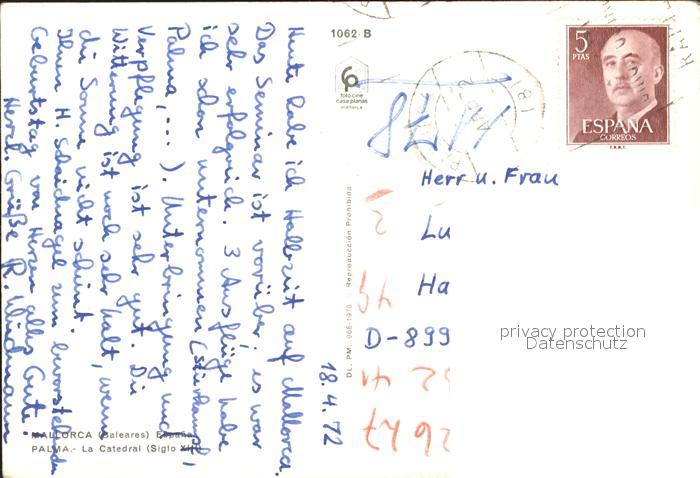 1062 - B
5
PTAS
ESPAÑA
CORREOS
F.N.M.T.
foto cine
casa planas
mallorca
Heute habe ich Halbzeit auf Mallorca.
Das Seminar ist vorüber; es war
sehr erfolgreich. 3 Ausflüge habe
ich schon unternommen (Stierkampf,
Palma, ... ). Unterbringung und
Verpflegung ist sehr gut. Die
Witterung ist noch sehr kalt, wenn
die Sonne nicht scheint.
Ihnen H. zum bevorstehenden
Geburtstag von Herzen alles Gute.
Herzl. Grüße R. Widmann
18.4.72
Herr u. Frau
Lu
Ha
D-899
DL. PM. 968-1970 - Reproducción Prohibida
MALLORCA (Baleares) España
PALMA.- La Catedral (Siglo XIII)
privacy protection
Datenschutz